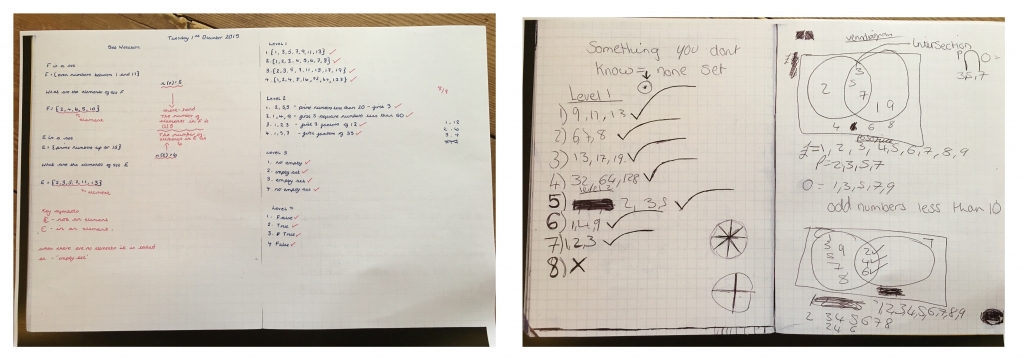 Tuesday 1st December 2015
Set Notation
F is a set
F = {even numbers between 1 and 11}
What are the elements of set F
n(F)=5
F = {2, 4, 6, 8, 10}
element
The number of elements in F is
E is a set
E = {prime numbers up to 13}
n(E)=6
What are the elements of set E
E = {2, 3, 5, 7, 11, 13}
element
Key symbols
∉ - not an element
∈ - is an element
when there are no elements it is called
an - 'empty set'
Level 1
1. {1, 3, 5, 7, 9, 11, 13}
2. {1, 2, 3, 4, 5, 6, 7, 8}
3. {2, 3, 5, 7, 11, 13, 17, 19}
4. {1, 2, 4, 8, 16, 32, 64, 128}
Level 2
1. 2, 3, 5 - prime numbers less than 20 - first 3
2. 1, 4, 9 - first 3 square numbers less than 50
3. 1, 2, 3 - first 3 factors of 12
4. 1, 5, 7 - factors of 35
1, 12
2, 6
3, 4
Level 3
1. no empty
2. empty set
3. empty set
4. no empty set
Level 4
1. False
2. True
3. True
4. False
Something you dont
Know = none set
Level 1
1) 9, 11, 13
2) 6, 7, 8
3) 13, 17, 19
4) 32, 64, 128
Level 2
5) 2, 3, 5
6) 1, 4, 9
7) 1, 2, 3
8) X
venndiagram
Intersection
P ∩ O =
3, 5, 7
2
3
5
7
1 9
4 6 8
ξ = 1, 2, 3, 4, 5, 6, 7, 8, 9
P = 2, 3, 5, 7
O = 1, 3, 5, 7, 9
odd numbers less than 10
T
3 9
5
7
8
2
4
6
1, 2, 3, 4, 5, 6, 7, 8, 9
2 3 4 5 6 7 8
2 4 6